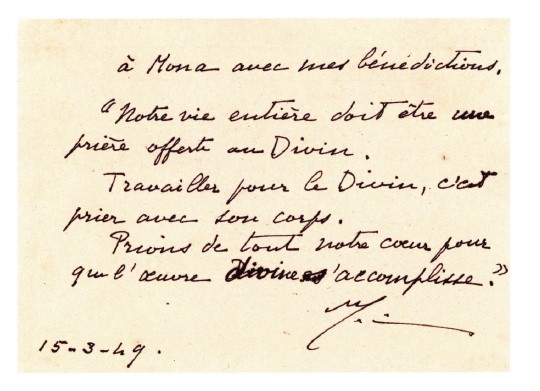 à Mona avec mes bénédictions.
"Notre vie entière doit être une
prière offerte au Divin.
Travailler pour le Divin, c'est
prier avec son corps.
Prions de tout notre cœur pour
que l'œuvre divine s'accomplisse."
15-3-49.